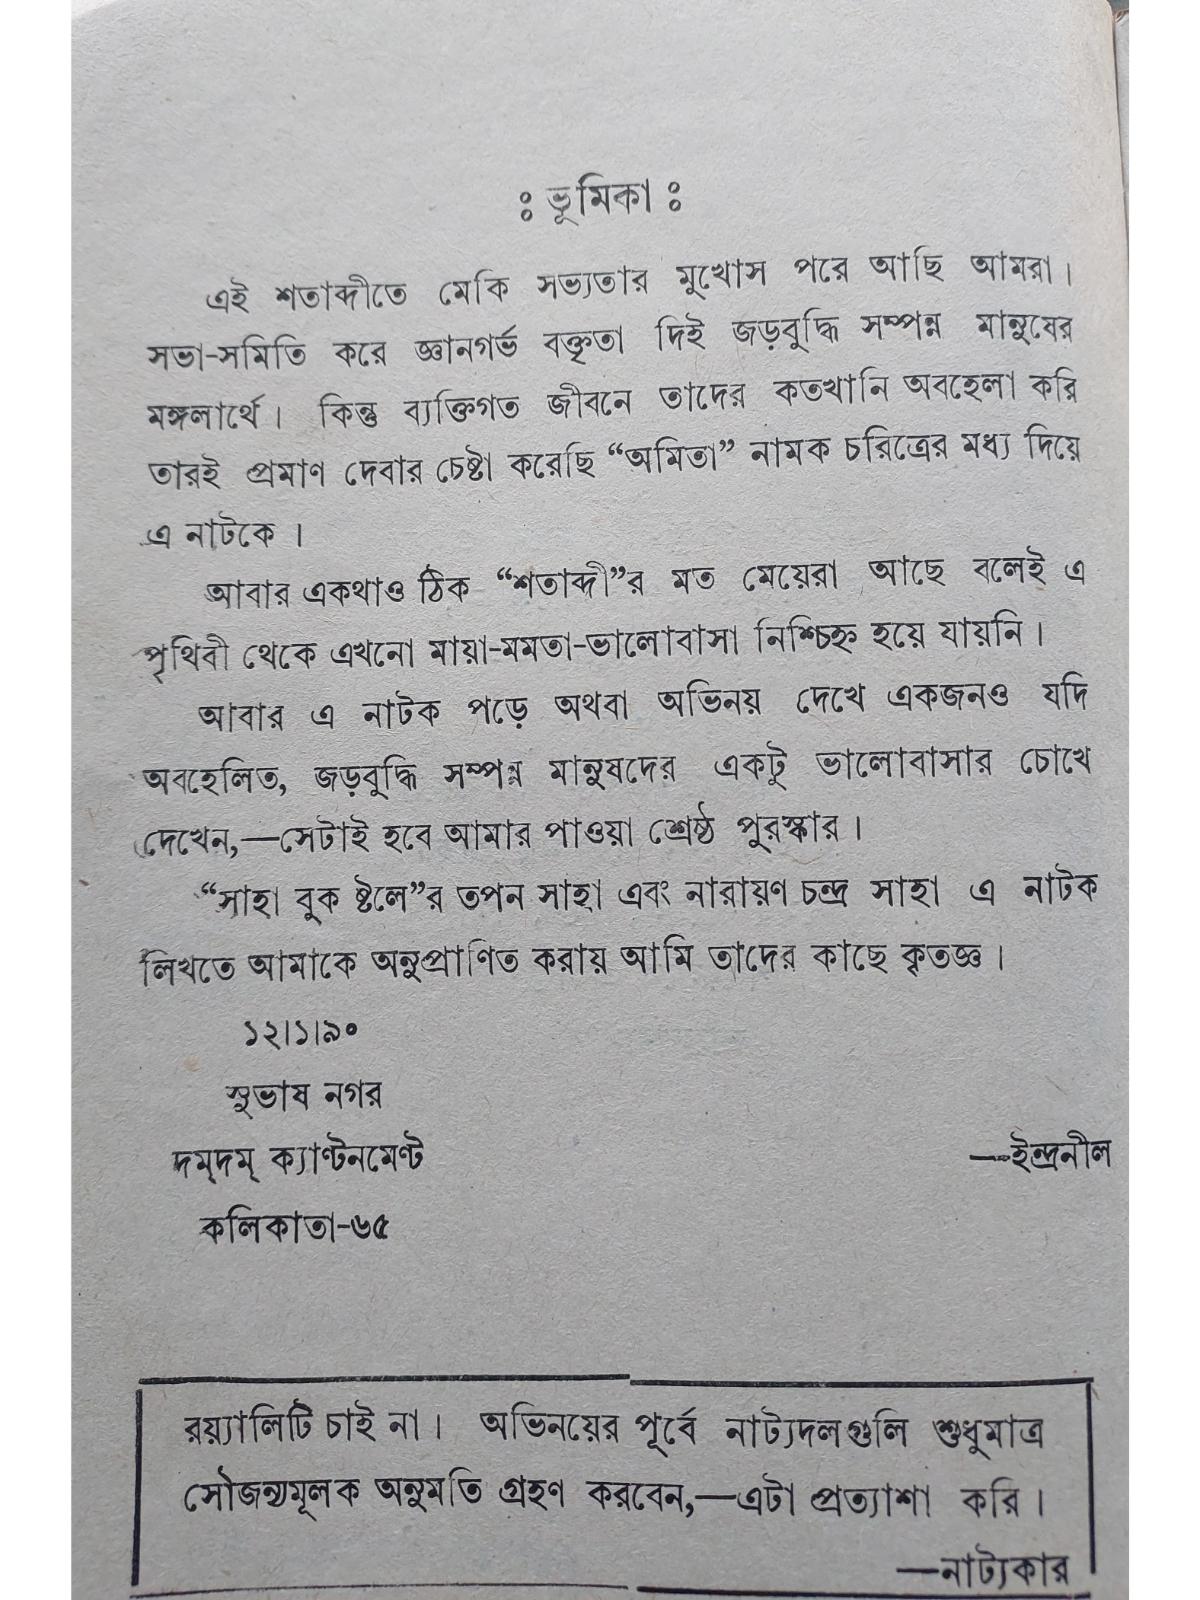 : ভূমিকা :
এই শতাব্দীতে মেকি সভ্যতার মুখোস পরে আছি আমরা।
সভা-সমিতি করে জ্ঞানগর্ভ বক্তৃতা দিই জড়বুদ্ধি সম্পন্ন মানুষের
মঙ্গলার্থে। কিন্তু ব্যক্তিগত জীবনে তাদের কতখানি অবহেলা করি
তারই প্রমাণ দেবার চেষ্টা করেছি “অমিতা” নামক চরিত্রের মধ্য দিয়ে
এ নাটকে।
আবার একথাও ঠিক “শতাব্দী”র মত মেয়েরা আছে বলেই এ
পৃথিবী থেকে এখনো মায়া-মমতা-ভালোবাসা নিশ্চিহ্ন হয়ে যায়নি।
আবার এ নাটক পড়ে অথবা অভিনয় দেখে একজনও যদি
অবহেলিত, জড়বুদ্ধি সম্পন্ন মানুষদের একটু ভালোবাসার চোখে
দেখেন,—সেটাই হবে আমার পাওয়া শ্রেষ্ঠ পুরস্কার।
“সাহা বুক ষ্টলে”র তপন সাহা এবং নারায়ণ চন্দ্র সাহা এ নাটক
লিখতে আমাকে অনুপ্রাণিত করায় আমি তাদের কাছে কৃতজ্ঞ।
১২।১।৯০
সুভাষ নগর
দম্‌দম্ ক্যাণ্টনমেণ্ট
—ইন্দ্রনীল
কলিকাতা-৬৫
রয়্যালিটি চাই না। অভিনয়ের পূর্বে নাট্যদলগুলি শুধুমাত্র
সৌজন্যমূলক অনুমতি গ্রহণ করবেন,—এটা প্রত্যাশা করি।
—নাট্যকার